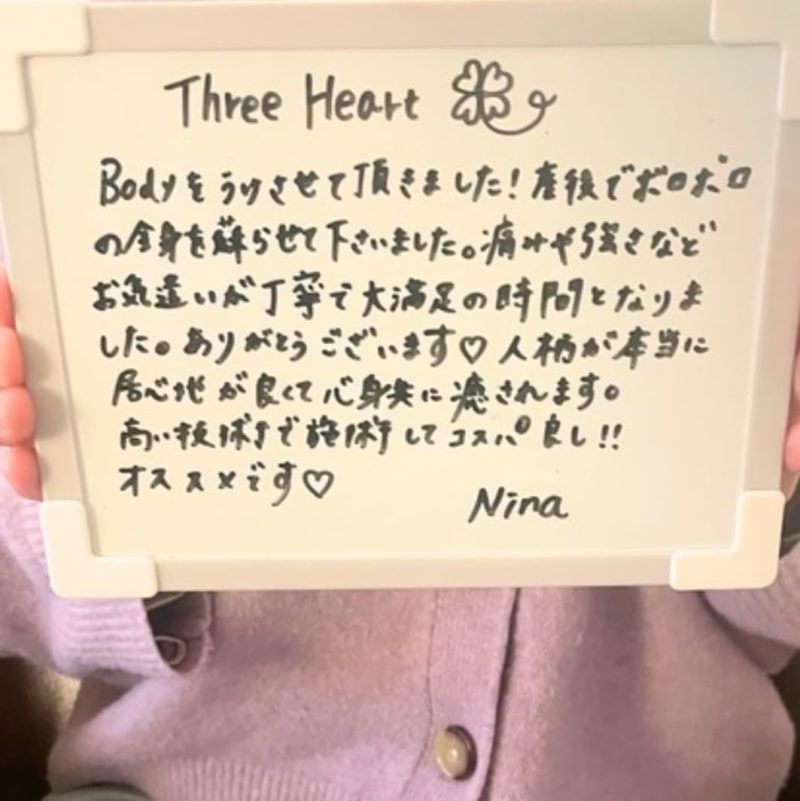 Three Heart
Bodyをうけさせて頂きました！産後でボロボロ
の全身を蘇らせて下さいました。痛みや強さなど
お気遣いが丁寧で大満足の時間となりま
した。ありがとうございます♡人柄が本当に
居心地が良くて心身共に癒されます。
高い技術で施術してコスパ良し!!
オススメです♡
Nina